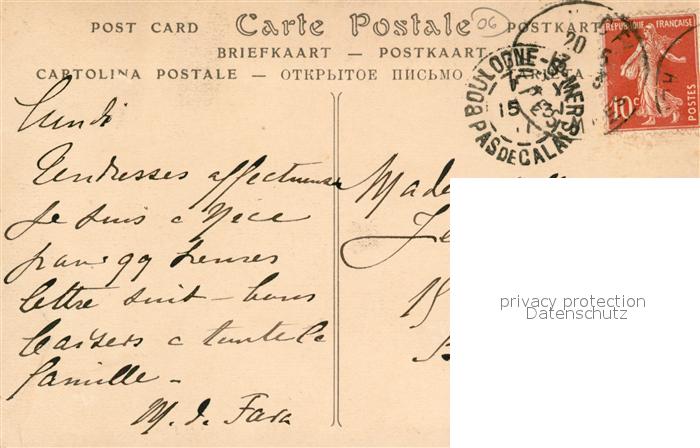 POST CARD — Carte Postale — POSTKARTE
BRIEFKAART — POSTKAART
CARTOLINA POSTALE — ОТКРЫТОЕ ПИСЬМО
06
BOULOGNE-S-MER
PAS DE CALAIS
15
20
REPUBLIQUE FRANÇAISE
10c
POSTES
Lundi
Tendresses affectueuses
Je suis a Nice
pour qq heures
lettre suit - bons
baisers a toute la
famille -
M. d. Fara
15
privacy protection
Datenschutz